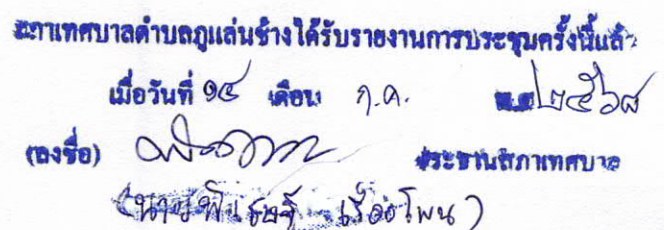 สภาเทศบาลตำบลภูแล่นช้างได้รับรายงานการประชุมครั้งนี้แล้ว
เมื่อวันที่ ๑๔ เดือน ก.ค. พ.ศ. ๒๕๖๘
(ลงชื่อ) ประธานสภาเทศบาล
(นาย